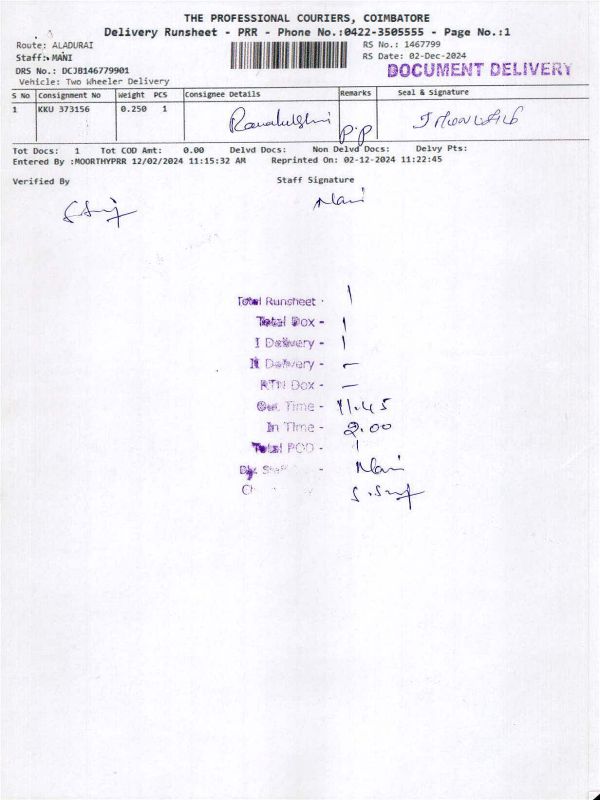 THE PROFESSIONAL COURIERS, COIMBATORE
Delivery Runsheet - PRR - Phone No.:0422-3505555 - Page No.:1
Route: ALADURAI
RS No.: 1467799
Staff: MANI
RS Date: 02-Dec-2024
DRS No.: DCJB146779901
DOCUMENT DELIVERY
Vehicle: Two Wheeler Delivery
S No Consignment No Weight PCS Consignee Details Remarks Seal & Signature
1 KKU 373156 0.250 1
P.P
Tot Docs: 1 Tot COD Amt: 0.00 Delvd Docs: Non Delvd Docs: Delvy Pts:
Entered By :MOORTHYPRR 12/02/2024 11:15:32 AM Reprinted On: 02-12-2024 11:22:45
Verified By Staff Signature
Mani
Total Runsheet - 1
Total Box - 1
I Delivery - 1
II Delivery - -
RTN Box - -
Out Time - 11.45
In Time - 2.00
Total POD - 1
Mani